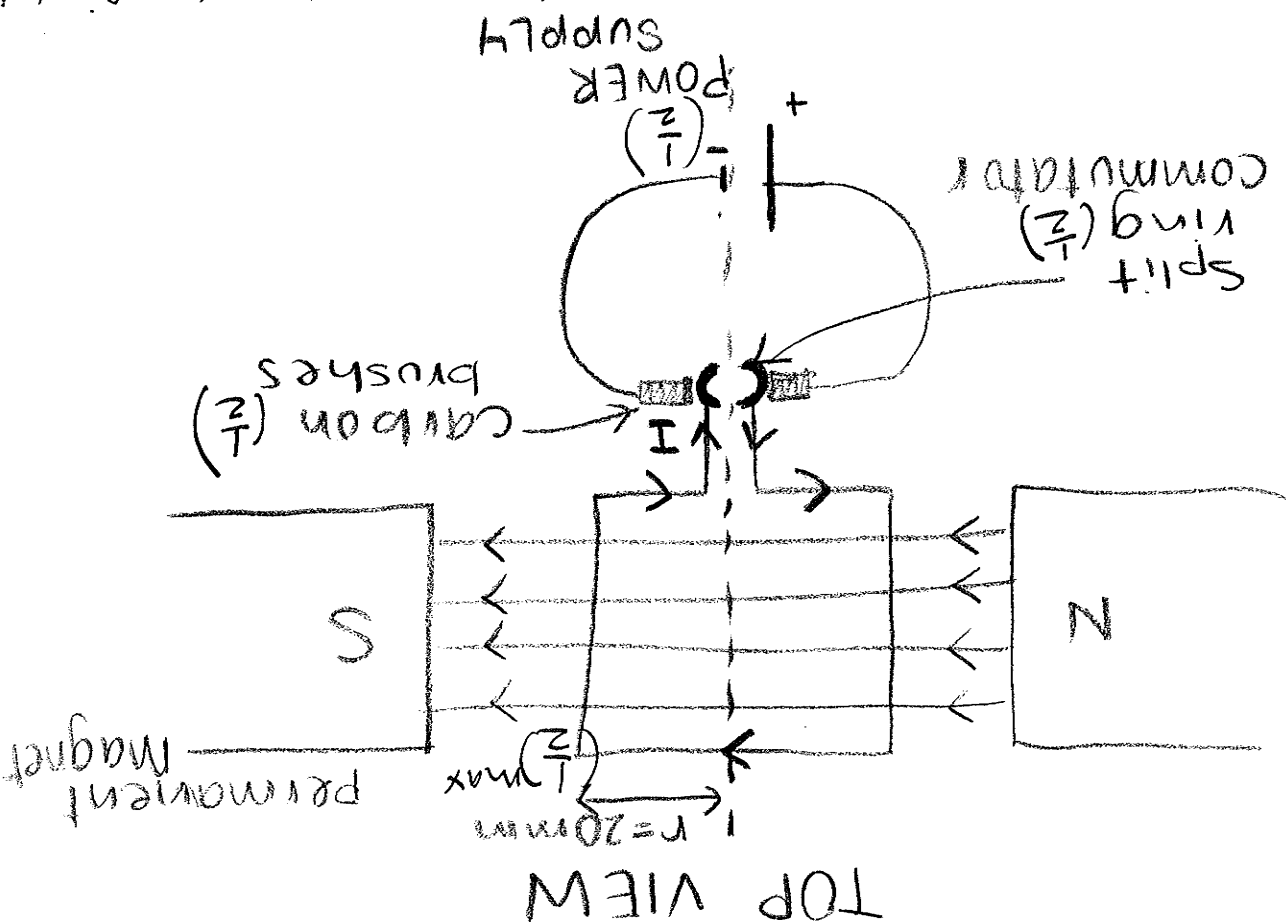 TOP VIEW
r=20mm
(1/2) max
permanent
magnet
N
S
I
carbon (1/2)
brushes
split
ring (1/2)
commutator
+
-
(1/2)
POWER
SUPPLY